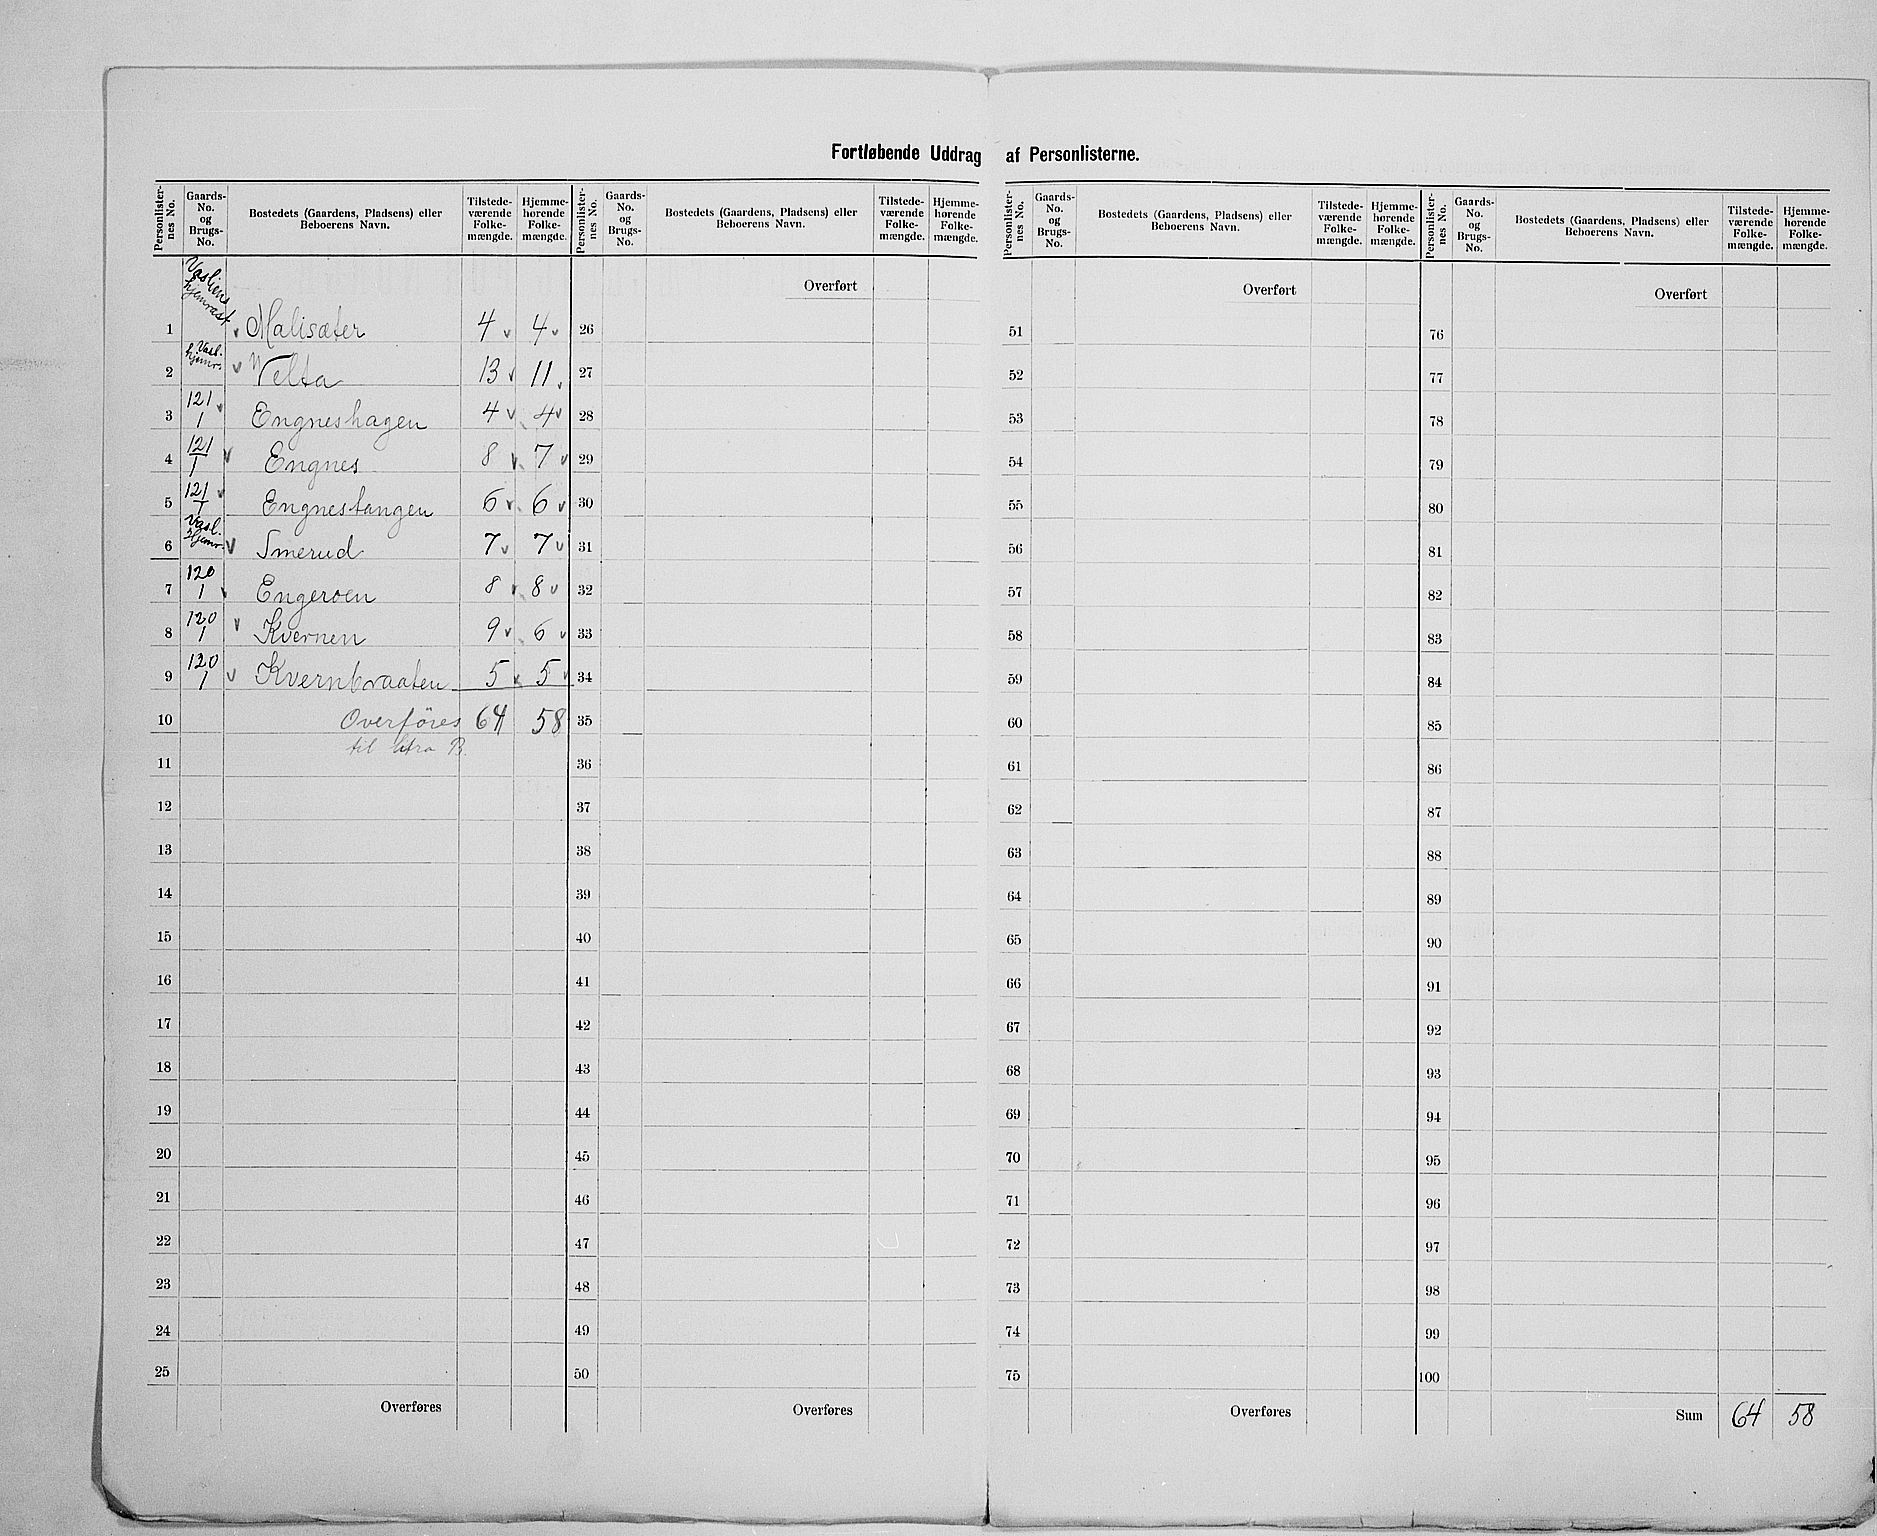 Fortløbende Uddrag af Personlisterne.
Personlister-nes No. | Gaards-No. og Brugs-No. | Bostedets (Gaardens, Pladsens) eller Beboerens Navn. | Tilstede-værende Folke-mængde. | Hjemme-hørende Folke-mængde.
Personlister-nes No. | Gaards-No. og Brugs-No. | Bostedets (Gaardens, Pladsens) eller Beboerens Navn. | Tilstede-værende Folke-mængde. | Hjemme-hørende Folke-mængde.
Personlister-nes No. | Gaards-No. og Brugs-No. | Bostedets (Gaardens, Pladsens) eller Beboerens Navn. | Tilstede-værende Folke-mængde. | Hjemme-hørende Folke-mængde.
Personlister-nes No. | Gaards-No. og Brugs-No. | Bostedets (Gaardens, Pladsens) eller Beboerens Navn. | Tilstede-værende Folke-mængde. | Hjemme-hørende Folke-mængde.
Overført Overført Overført
1 Malisæter 4 4 26 51 76
2 Vasl. hjemr. Velta 13 11 27 52 77
3 121/1 Engneshagen 4 4 28 53 78
4 121/1 Engnes 8 7 29 54 79
5 121/1 Engnestangen 6 6 30 55 80
6 Vasl. Hjemr. Smerud 7 7 31 56 81
7 120/1 Engeroen 8 8 32 57 82
8 120/1 Kvernen 9 6 33 58 83
9 120/1 Kvernbraaten 5 5 34 59 84
10 Overföres 64 58 35 60 85
til litra B.
11 36 61 86
12 37 62 87
13 38 63 88
14 39 64 89
15 40 65 90
16 41 66 91
17 42 67 92
18 43 68 93
19 44 69 94
20 45 70 95
21 46 71 96
22 47 72 97
23 48 73 98
24 49 74 99
25 50 75 100
Overføres Overføres Overføres Sum 64 58